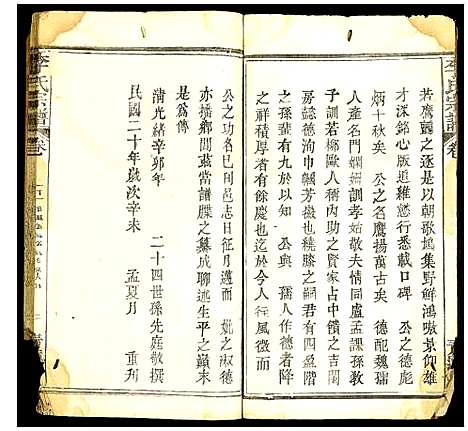 李氏宗譜
卷
若鸞翮之逐是以朝歌塢集野鮮鴻嗷景仰雄
才深銘心版追維慈行悉載口碑　公之德彪
炳千秋矣　公之名鷹揚萬古矣　德配魏孺
人產名門嫻姻訓始敬夫情同盧孟課孫教
子訓若柳歐人稱內助之賢家占中饋之吉閫
房懿德洵巾幗芳徽也繞膝之嗣君有四盈階
之孫輩有九以知　公與　孺人作德者降
之祥積厚者有餘慶也迄於今人行風微而
公之功名已刊邑志日征月邁而　妣之淑德
亦播鄉閭茲當譜牒之纂成聊述生平之巔末
是為傳
清光緒辛卯年　二十四世孫先庭敬撰
民國二十年歲次辛未　孟夏月　重刊
李氏宗譜
卷